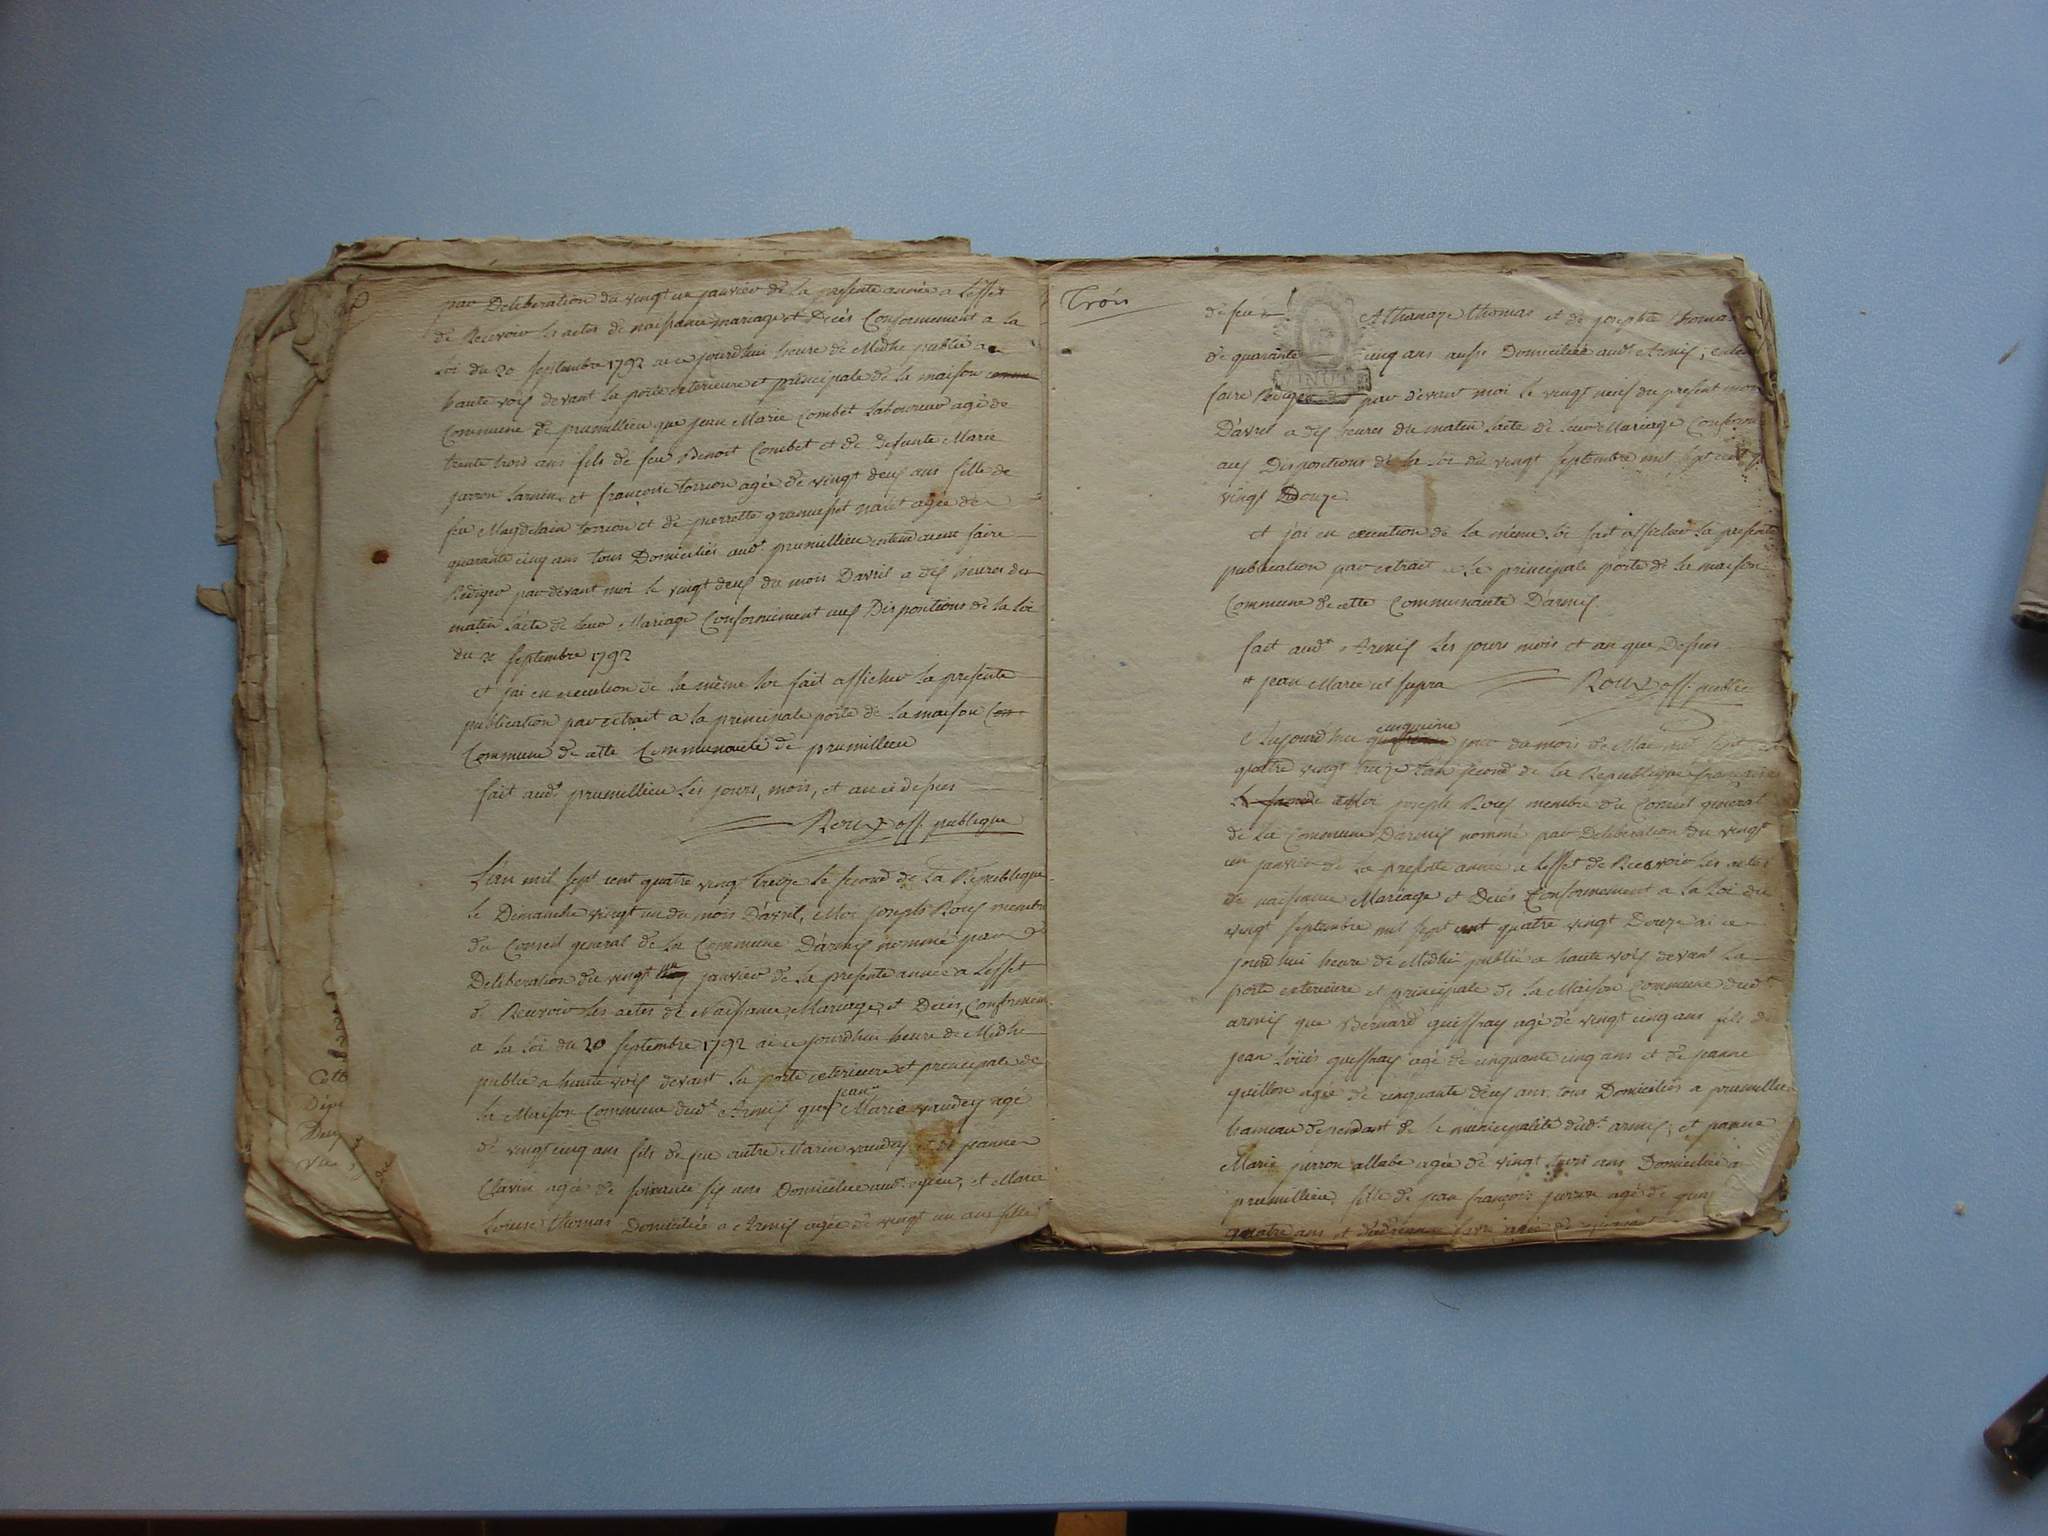 par Deliberation du vingt un janvier de la presente année a Leffet
de Recevoir les actes de naissance mariage et Decés Conformement a la
loi du 20 septembre 1792 ai ce jourdhui heure de Midhi publié a
haute voix devant la porte exterieure et principale de la maison
Commune de prumillieu que jean Marie Combet Laboureur agé de
trente trois ans fils de feu Benoit Combet et de defunte Marie
et françoise torrion agée de vingt deux ans fille de
feu torrion et de pierrette agée de
quarante cinq ans tous Domiciliés aud.t prumillieu entendaient faire
Rediger par devant moi le vingt deux du mois Davril a dix heures du
matin Lacte de leur Mariage Conformement aux Dispositions de la loi
du 20 septembre 1792
et jai en execution de la même loi fait afficher la presente
publication par extrait a la principale porte de la maison
Commune de cette Communauté de prumillieu
fait aud.t prumillieu les jours, mois, et an ci dessus
Roux off. publique
L'an mil sept cent quatre vingt treize le second de la Republique
le Dimanche vingt un du mois D'avril, Moi joseph Roux membre
du Conseil general de la Commune D'armix nommé par
Deliberation du vingt un janvier de la presente année a Leffet
de Recevoir les actes de Naissance, Mariage, et Decés, Conformem.
a la loi du 20 septembre 1792 ai ce jourdhui heure de Midhi
publié a haute voix devant la porte exterieure et principale de
la Maison Commune dud.t Armix que jean Marie vauday agé
de vingt cinq ans fils de feu autre Marin vauday et de jeanne
Clavin agée de soixante six ans Domiciliée aud.t et Marie
Louise thomas Domiciliée a Armix agée de vingt un ans fille
Trois
de feu Athanaze thomas et de josephte thomas
de quarante cinq ans aussi Domiciliée aud.t Armix,
faire Rediger par devant moi le vingt neuf du present mois
D'avril a dix heures du matin lacte de leur Mariage
aux Dispositions de la loi du vingt septembre mil sept cent q.
vingt Douze.
et jai en execution de la même loi fait afficher la presente
publication par extrait a la principale porte de la maison
Commune de cette Communauté D'armix.
fait aud.t Armix les jours mois et an que Dessus
# jean Marie ut supra Roux off. public
Aujourdhui cinquieme jour du mois de Mai mil sept cent
quatre vingt treize Lan second de la Republique française
Moi joseph Roux membre du Conseil general
de la Commune D'armix nommé par Deliberation du vingt
un janvier de la presente année a Leffet de Recevoir les actes
de naissance Mariage et Decés Conformement a la loi du
vingt septembre mil sept cent quatre vingt Douze ai ce
jourdhui heure de Midhi publié a haute voix devant la
porte exterieure et principale de la Maison Commune dud.t
armix que Bernard quiffray agé de vingt cinq ans fils de
jean Loüis quiffray agé de cinquante cinq ans et de jeanne
quillon agée de cinquante deux ans tous Domiciliés a prumillieu
hameau dependant de la municipalité dud.t armix; et jeanne
Marie jurron allabe agée de vingt trois ans Domiciliée a
prumillieu, fille de jean françois jurron agé de
quatre ans et agée de